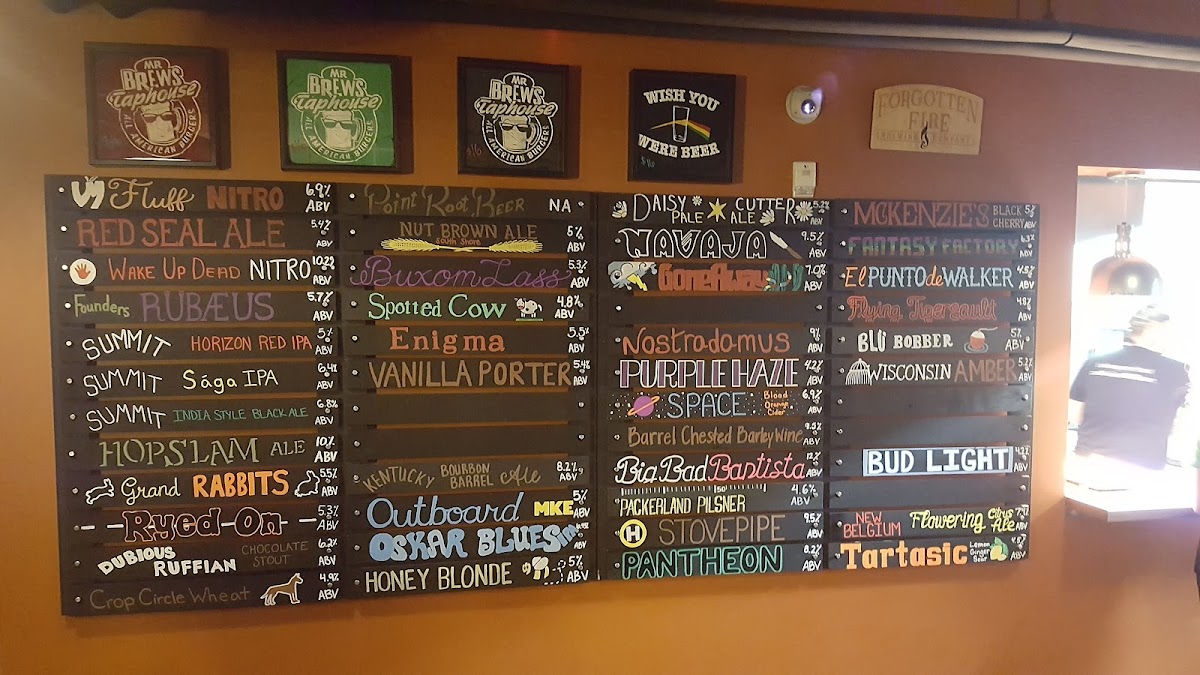 MR
BREWS
Taphouse
ALL AMERICAN BURGERS
MR
BREWS
Taphouse
ALL AMERICAN BURGERS
MR
BREWS
Taphouse
ALL AMERICAN BURGERS
WISH YOU
WERE BEER
FORGOTTEN
FIRE
Fluff NITRO 6.9% ABV
RED SEAL ALE 5.4% ABV
WAKE UP DEAD NITRO ABV
Founders RUBÆUS 5.7% ABV
SUMMIT HORIZON RED IPA 5% ABV
SUMMIT Sága IPA 6.4% ABV
SUMMIT INDIA STYLE BLACK ALE 6.8% ABV
HOPSLAM ALE 10% ABV
Grand RABBITS 5.5% ABV
Ryed-On 5.3% ABV
DUBIOUS RUFFIAN CHOCOLATE STOUT 6.2% ABV
Crop Circle Wheat 4.9% ABV
Point Root Beer NA
NUT BROWN ALE South Shore 5% ABV
Buxom Lass 5.3% ABV
Spotted Cow 4.8% ABV
Enigma 5.5% ABV
VANILLA PORTER 5.4% ABV
KENTUCKY BOURBON BARREL Ale 8.2% ABV
Outboard MKE 5% ABV
OSKAR BLUES ABV
HONEY BLONDE 5% ABV
DAISY CUTTER PALE ALE 5.2% ABV
NAVAJA 9.5% ABV
GoneAway 7.0% ABV
Nostradamus 9% ABV
PURPLE HAZE 4.2% ABV
SPACE Blood Orange Cider 6.9% ABV
Barrel Chested Barley Wine ABV
Big Bad Baptista 12% ABV
PACKERLAND PILSNER 4.6% ABV
H STOVEPIPE 9.5% ABV
PANTHEON 8.2% ABV
MCKENZIE'S BLACK CHERRY 5% ABV
FANTASY FACTORY ABV
El PUNTO de WALKER 4.5% ABV
Flying Tigersault 4.8% ABV
BLÜ BOBBER 5% ABV
WISCONSIN AMBER 5.2% ABV
BUD LIGHT 4.2% ABV
NEW BELGIUM Flowering Citrus Ale ABV
Tartastic Lemon Ginger Sour ABV